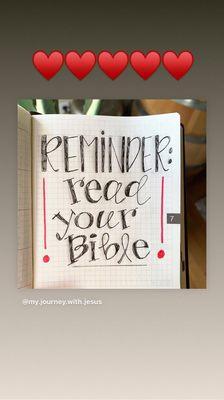 REMINDER:
read
your
Bible
7
@my.journey.with.jesus